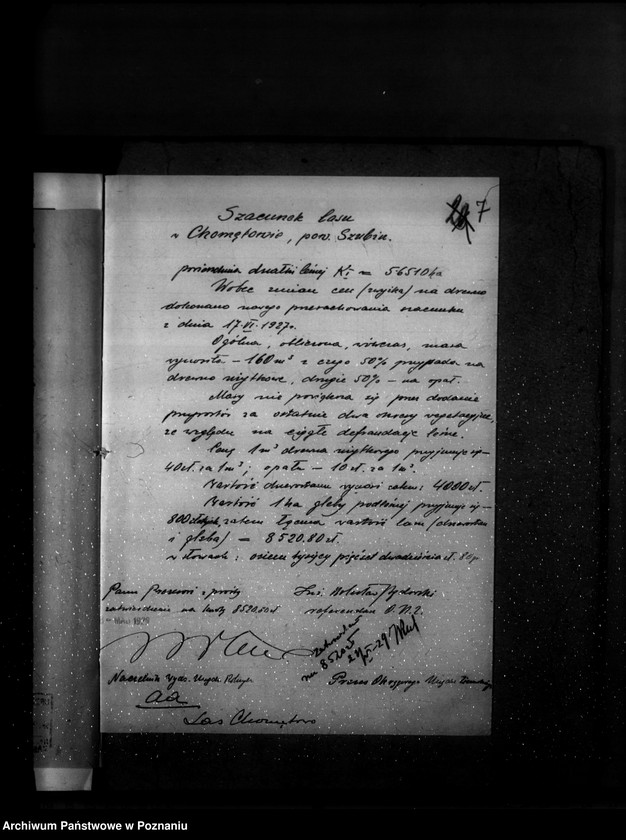 7
Szacunek lasu
w Chomętowie, pow. Szubin.
powierzchnia działki leśnej Kt = 56510 ha
Wobec zmian cen (zwyżka) na drewno
dokonano nowego przerachowania szacunku
z dnia 17.VI.1927 r.
Ogólna, obliczona, wówczas, masa
wynosiła – 160 m³ z czego 50% przypada na
drewno użytkowe, drugie 50% – na opał.
Masy nie powiększa się przez dodanie
przyrostu za ostatnie dwa okresy wegetacyjne,
ze względu na ciągłe defraudacje leśne.
Cenę 1 m³ drewna użytkowego przyjmuje się –
40 zł. za 1 m³, opału – 10 zł. za 1 m³.
Wartość drzewostanu wynosi zatem: 4000 zł.
Wartość 1 ha gleby podleśnej przyjmuje się –
800 złotych, zatem łączna wartość lasu (drzewostan
i gleba) – 8520.80 zł.
w słowach: osiem tysięcy pięćset dwadzieścia zł. 80 gr
Panu Prezesowi z prośbą
zatwierdzenie na kwotę 8520.80 zł
Inż. Bolesław
referendarz O.U.Z.
zatwierdzam
na 8520.80
Naczelnik Wydz.
Prezes Okręgowego Urzędu Ziemskiego
aa
Las Chomętowo
Archiwum Państwowe w Poznaniu